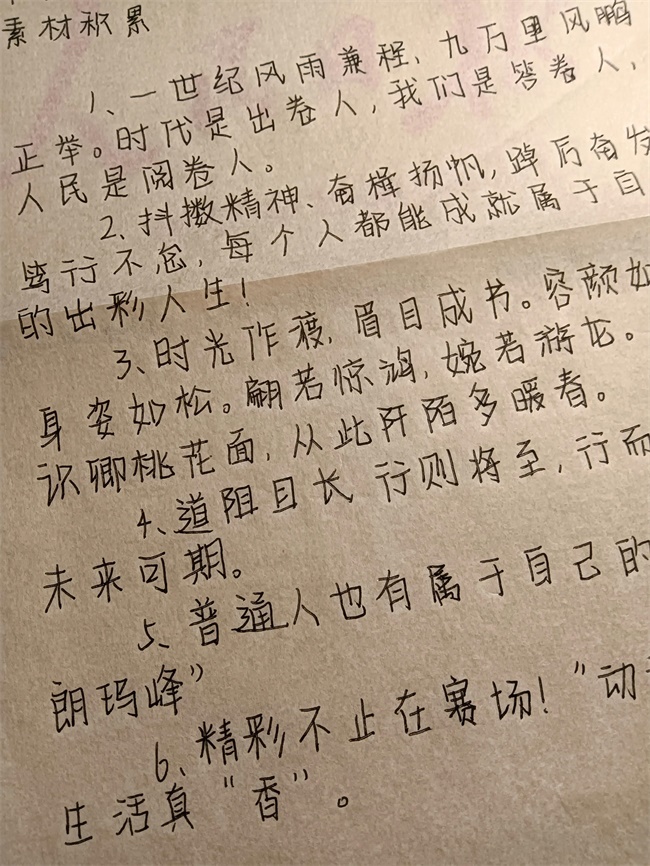 素材积累
1、一世纪风雨兼程，九万里风鹏
正举。时代是出卷人，我们是答卷人，
人民是阅卷人。
2、抖擞精神、奋楫扬帆，踔厉奋发
笃行不怠，每个人都能成就属于自
的出彩人生！
3、时光作渡，眉目成书。容颜如
身姿如松。翩若惊鸿，婉若游龙。
识卿桃花面，从此阡陌多暖春。
4、道阻且长 行则将至，行而
未来可期。
5、普通人也有属于自己的
朗玛峰”
6、精彩不止在赛场！“动
生活真“香”。